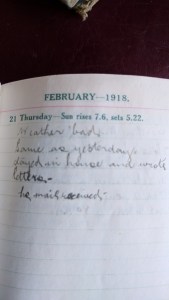 FEBRUARY—1918.
21 Thursday—Sun rises 7.6, sets 5.22.
Weather bad.
Same as yesterday.
in house and wrote
letters.-
No mail received.